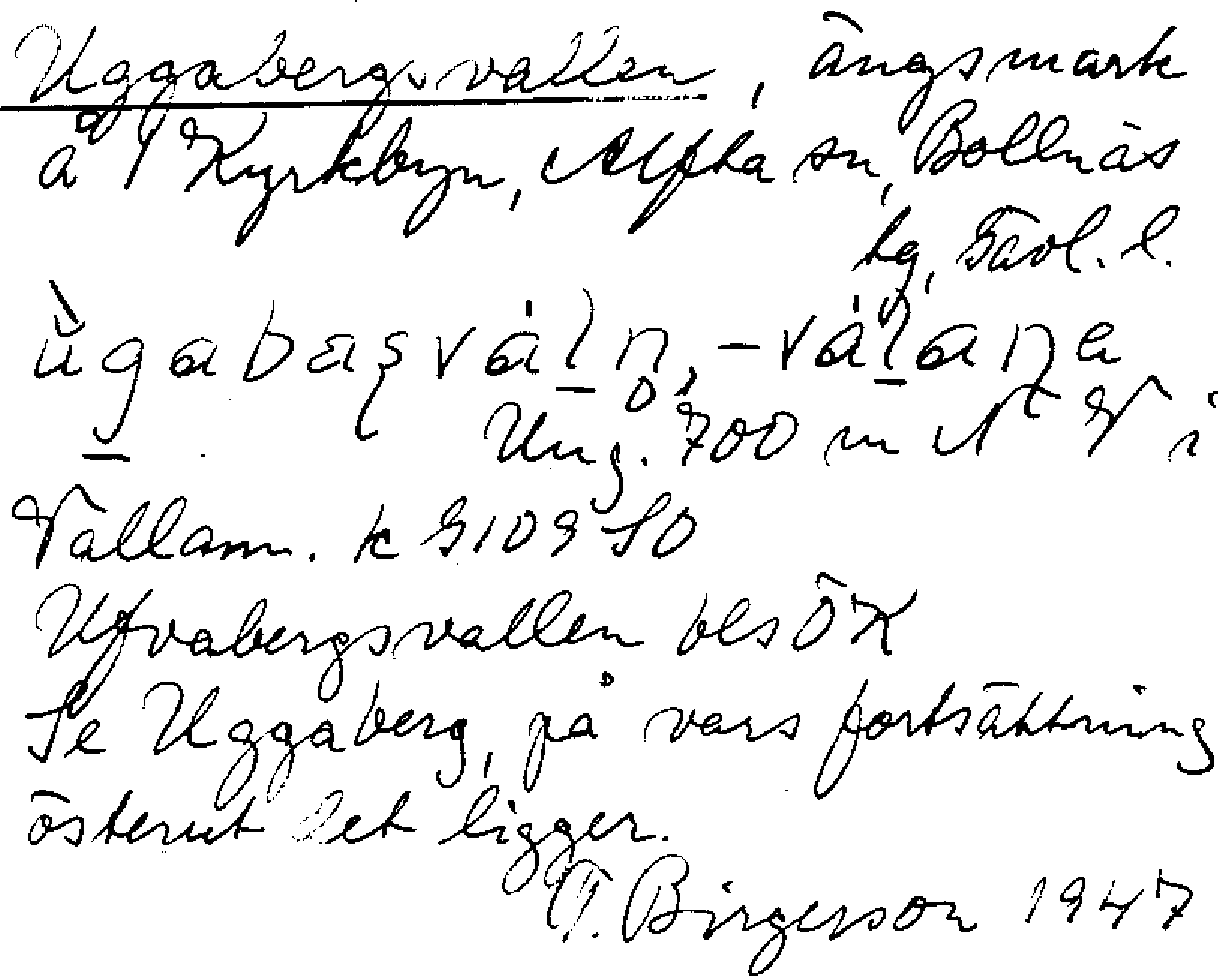 Uggabergsvallen, ängsmark
å 1 Kyrkbyn, Alfta sn, Bollnäs
tg, Gävl. l.
ùgabærsváln̥, -válana
Ung. 700 m N V i
Vallam. k 9109 SO
Ufvabergsvallen bls ÖK
Se Uggaberg, på vars fortsättning
österut det ligger.
T. Birgerson 1947